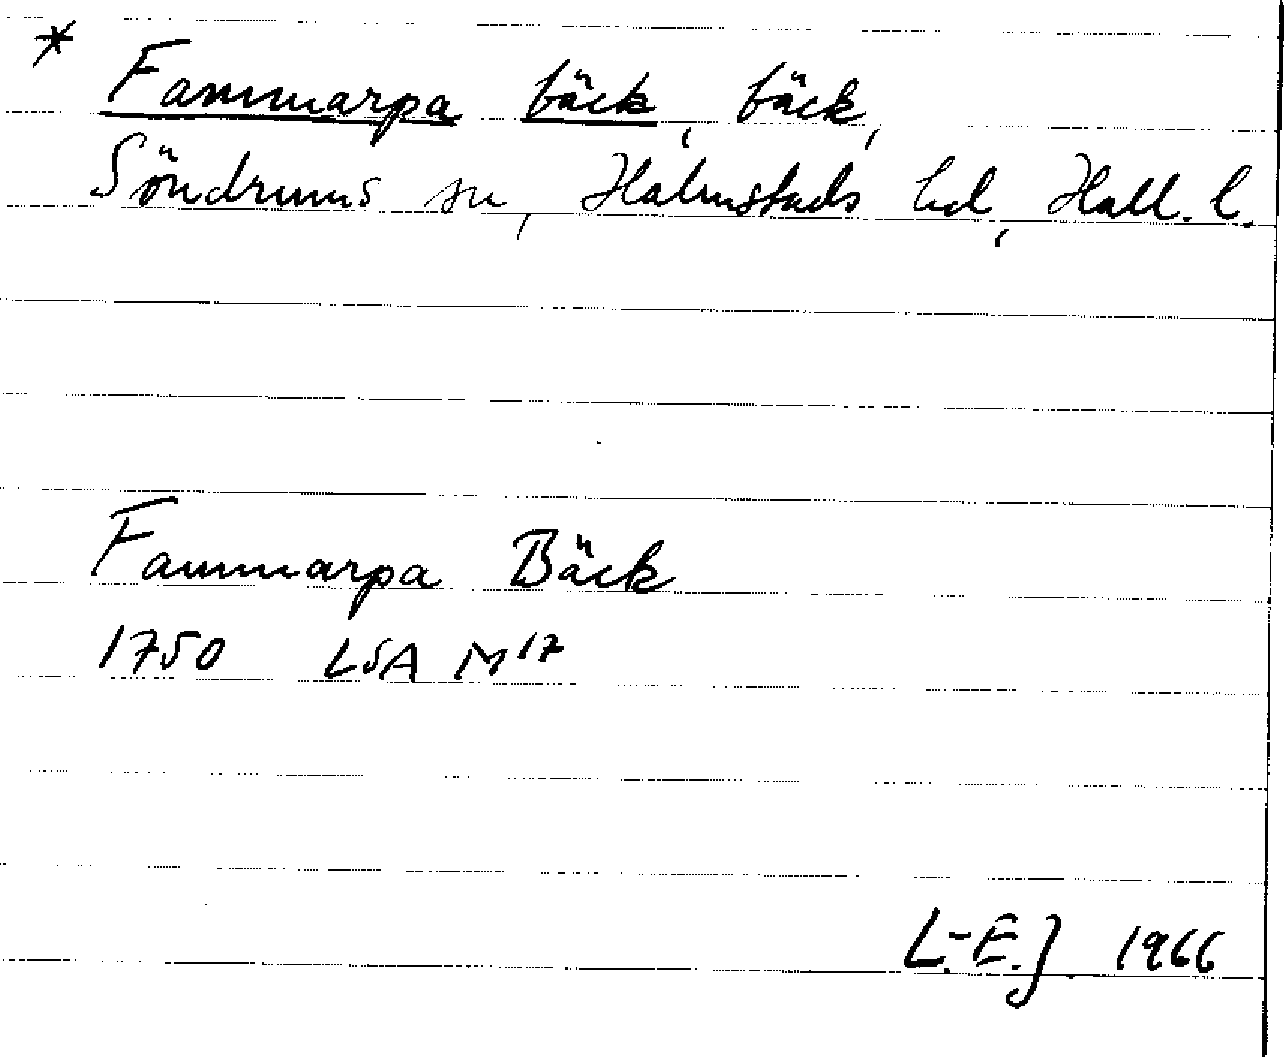 * Fammarpa bäck, bäck,
Söndrums sn, Halmstads hd, Hall. l.
Fammarpa Bäck
1750 LSA M17
L.-E.J. 1966